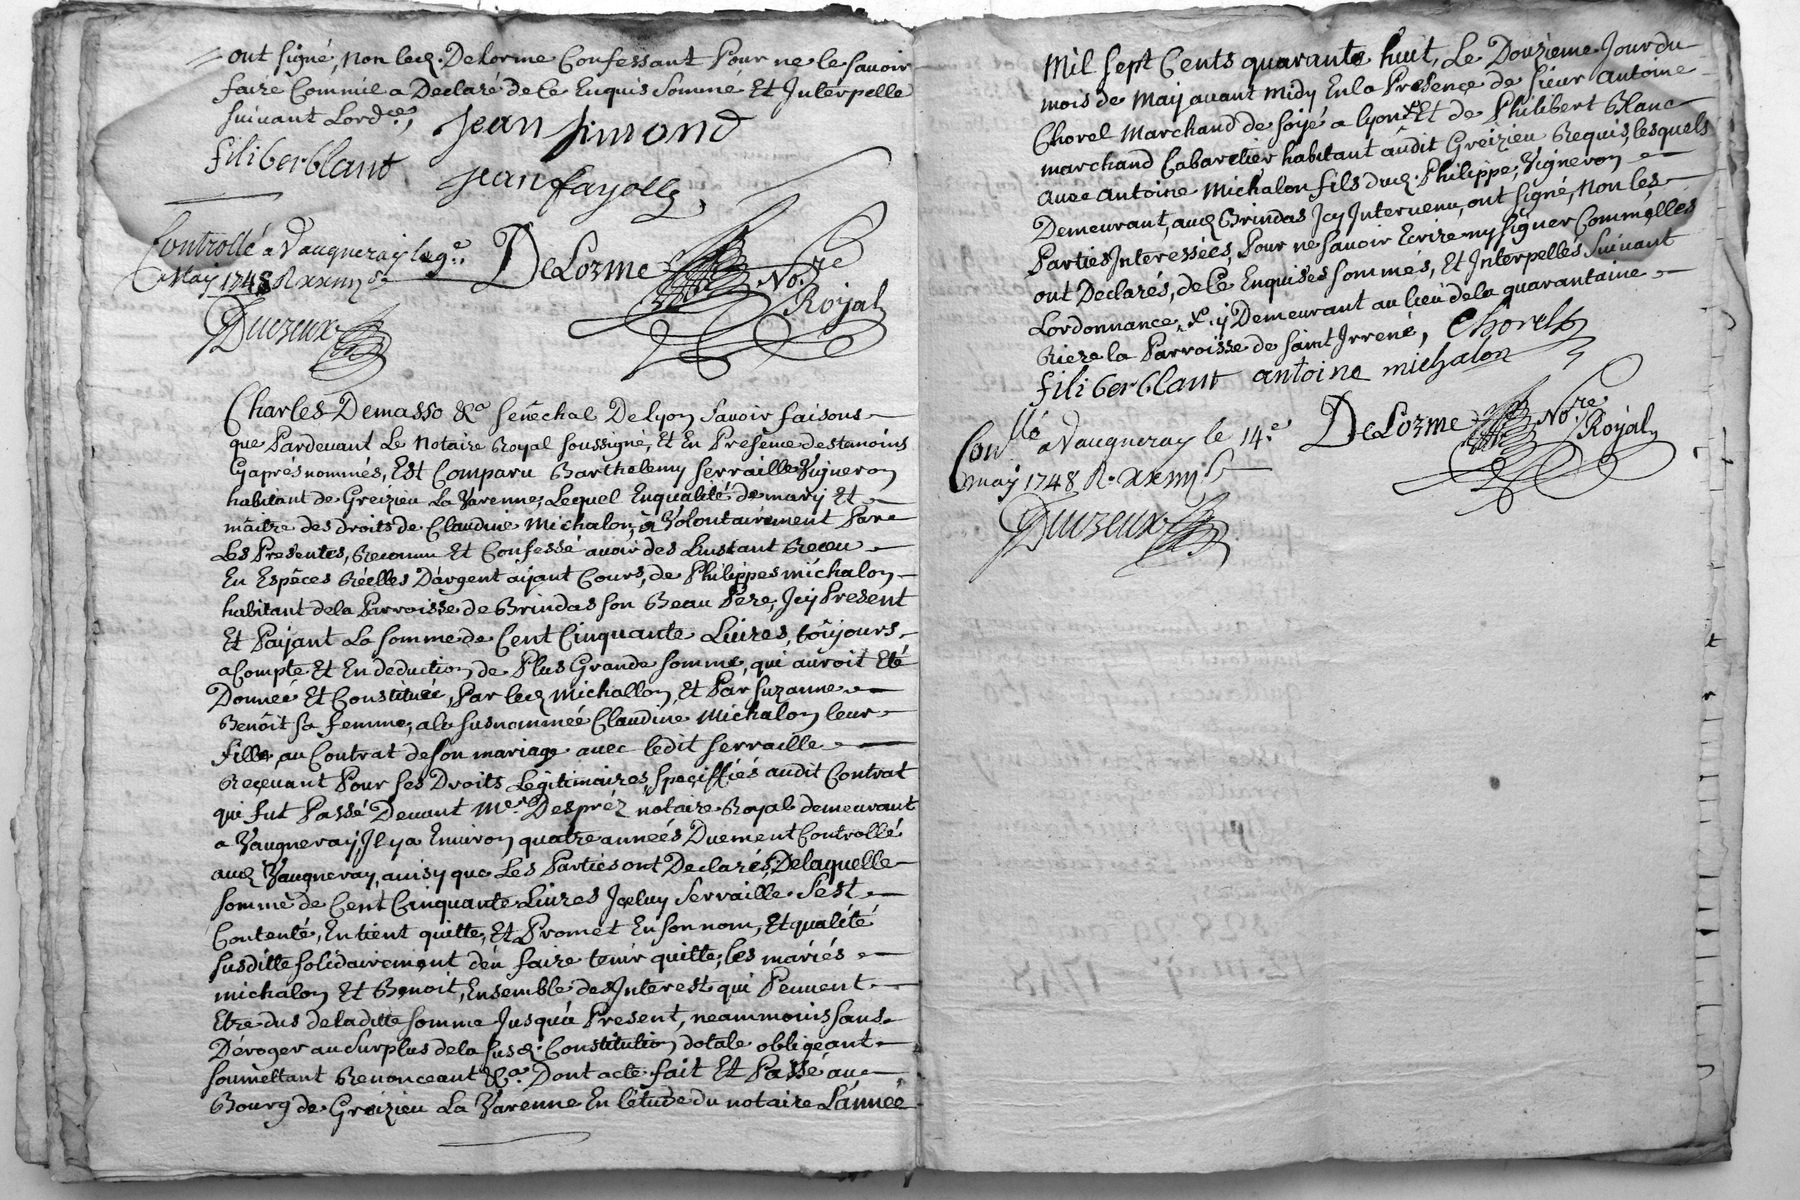 ont signé, non led. Delorme Confessant Pour ne le savoir
faire Comme il a Declaré de Ce Enquis Sommé Et Interpellé
suivant Lord.ce,
Jean simond
filiber blant
Jean fayolle
Controllé a Vaugneray le 9.e
May 1748 R xxiiij s.
DeLorme No.re
Royal
Duizeux
Charles Demasso &.a Senéchal De Lyon Savoir faisons
que Pardevant Le Notaire Royal soussigné, Et En Presence des tamoins
Cyaprés nommés, Est Comparu Barthelemy Serraille Vigneron
habitant de Greizieu La Varenne, Lequel Enqualité de mary Et
mâitre des droits de Claudine Michalon, a Volontairement Par
Les Presentes, Reconnu Et Confessé avoir des Linstant Reçeu
En Espêces Réelles D'argent aÿant Cours, de Philippes michalon
habitant dela Parroisse de Brindas son Beau Pere, Jcÿ Present
Et Païjant La somme de Cent Cinquante Livres, toûjours
acompte Et En deduction de Plus Grande somme, qui auroit Eté
Donneé Et Constituée, Par led. Michallon, Et Par Suzanne
Benôit sa femme, ala susnommée Claudine Michalon leur
fille, au Contrat de son mariage avec ledit serraille
Reçevant Pour ses Droits Legitimaires, speçiffiés audit Contrat
qui fut Passé Devant M.e Despréz notaire Royal demeurant
a Vaugneray, Jl y a Environ quatre années Duement Controllé
aud. Vaugneray, ainsy que Les Parties ont Declarés, Delaquelle
somme de Cent Cinquante Livres Jceluy Serraille S'est
Contenté, En tient quitte, Et Promet En son nom, Et qualité
susditte solidairement d'en faire tenir quitte, les mariés
michalon Et Benoit, Ensemble des Interest qui Peuvent
Etre dus de la ditte somme Jusqu'a Present, neammoins sans
Déroger au Surplus dela susd. Constitution dotale obligeant
soumettant Renonceant &.a Dont acte fait Et Passé au
Bourg de Greizieu La Varenne En létude du notaire L'année
Mil sept Cents quarante huit, Le Douzieme Jour du
mois de Maij avant midy En la Presence de sieur Antoine
Chorel Marchand de soÿe a lyon x Et de Philibert Blanc
marchand Cabaretier habitant audit Greizieu Requis, lesquels
avec Antoine Michalon fils dud. Philippe, Vigneron
Demeurant, aud. Brindas Jcy Intervenu, ont signé, Non les
Parties Interessées, Pour ne savoir Ecrire ny signer Comm'elles
ont Declarés, de Ce Enquises sommés, Et Interpellés Suivant
Lordonnance, x ÿ Demeurant au lieu dela quarantaine
Riere la Parroisse de saint Jrrené,
Chorel
filiber blant
antoine michalon
Con.llé a Vaugneray le 14.e
may 1748 R. xxiiij s.
DeLorme No.re
Royal
Duizeux